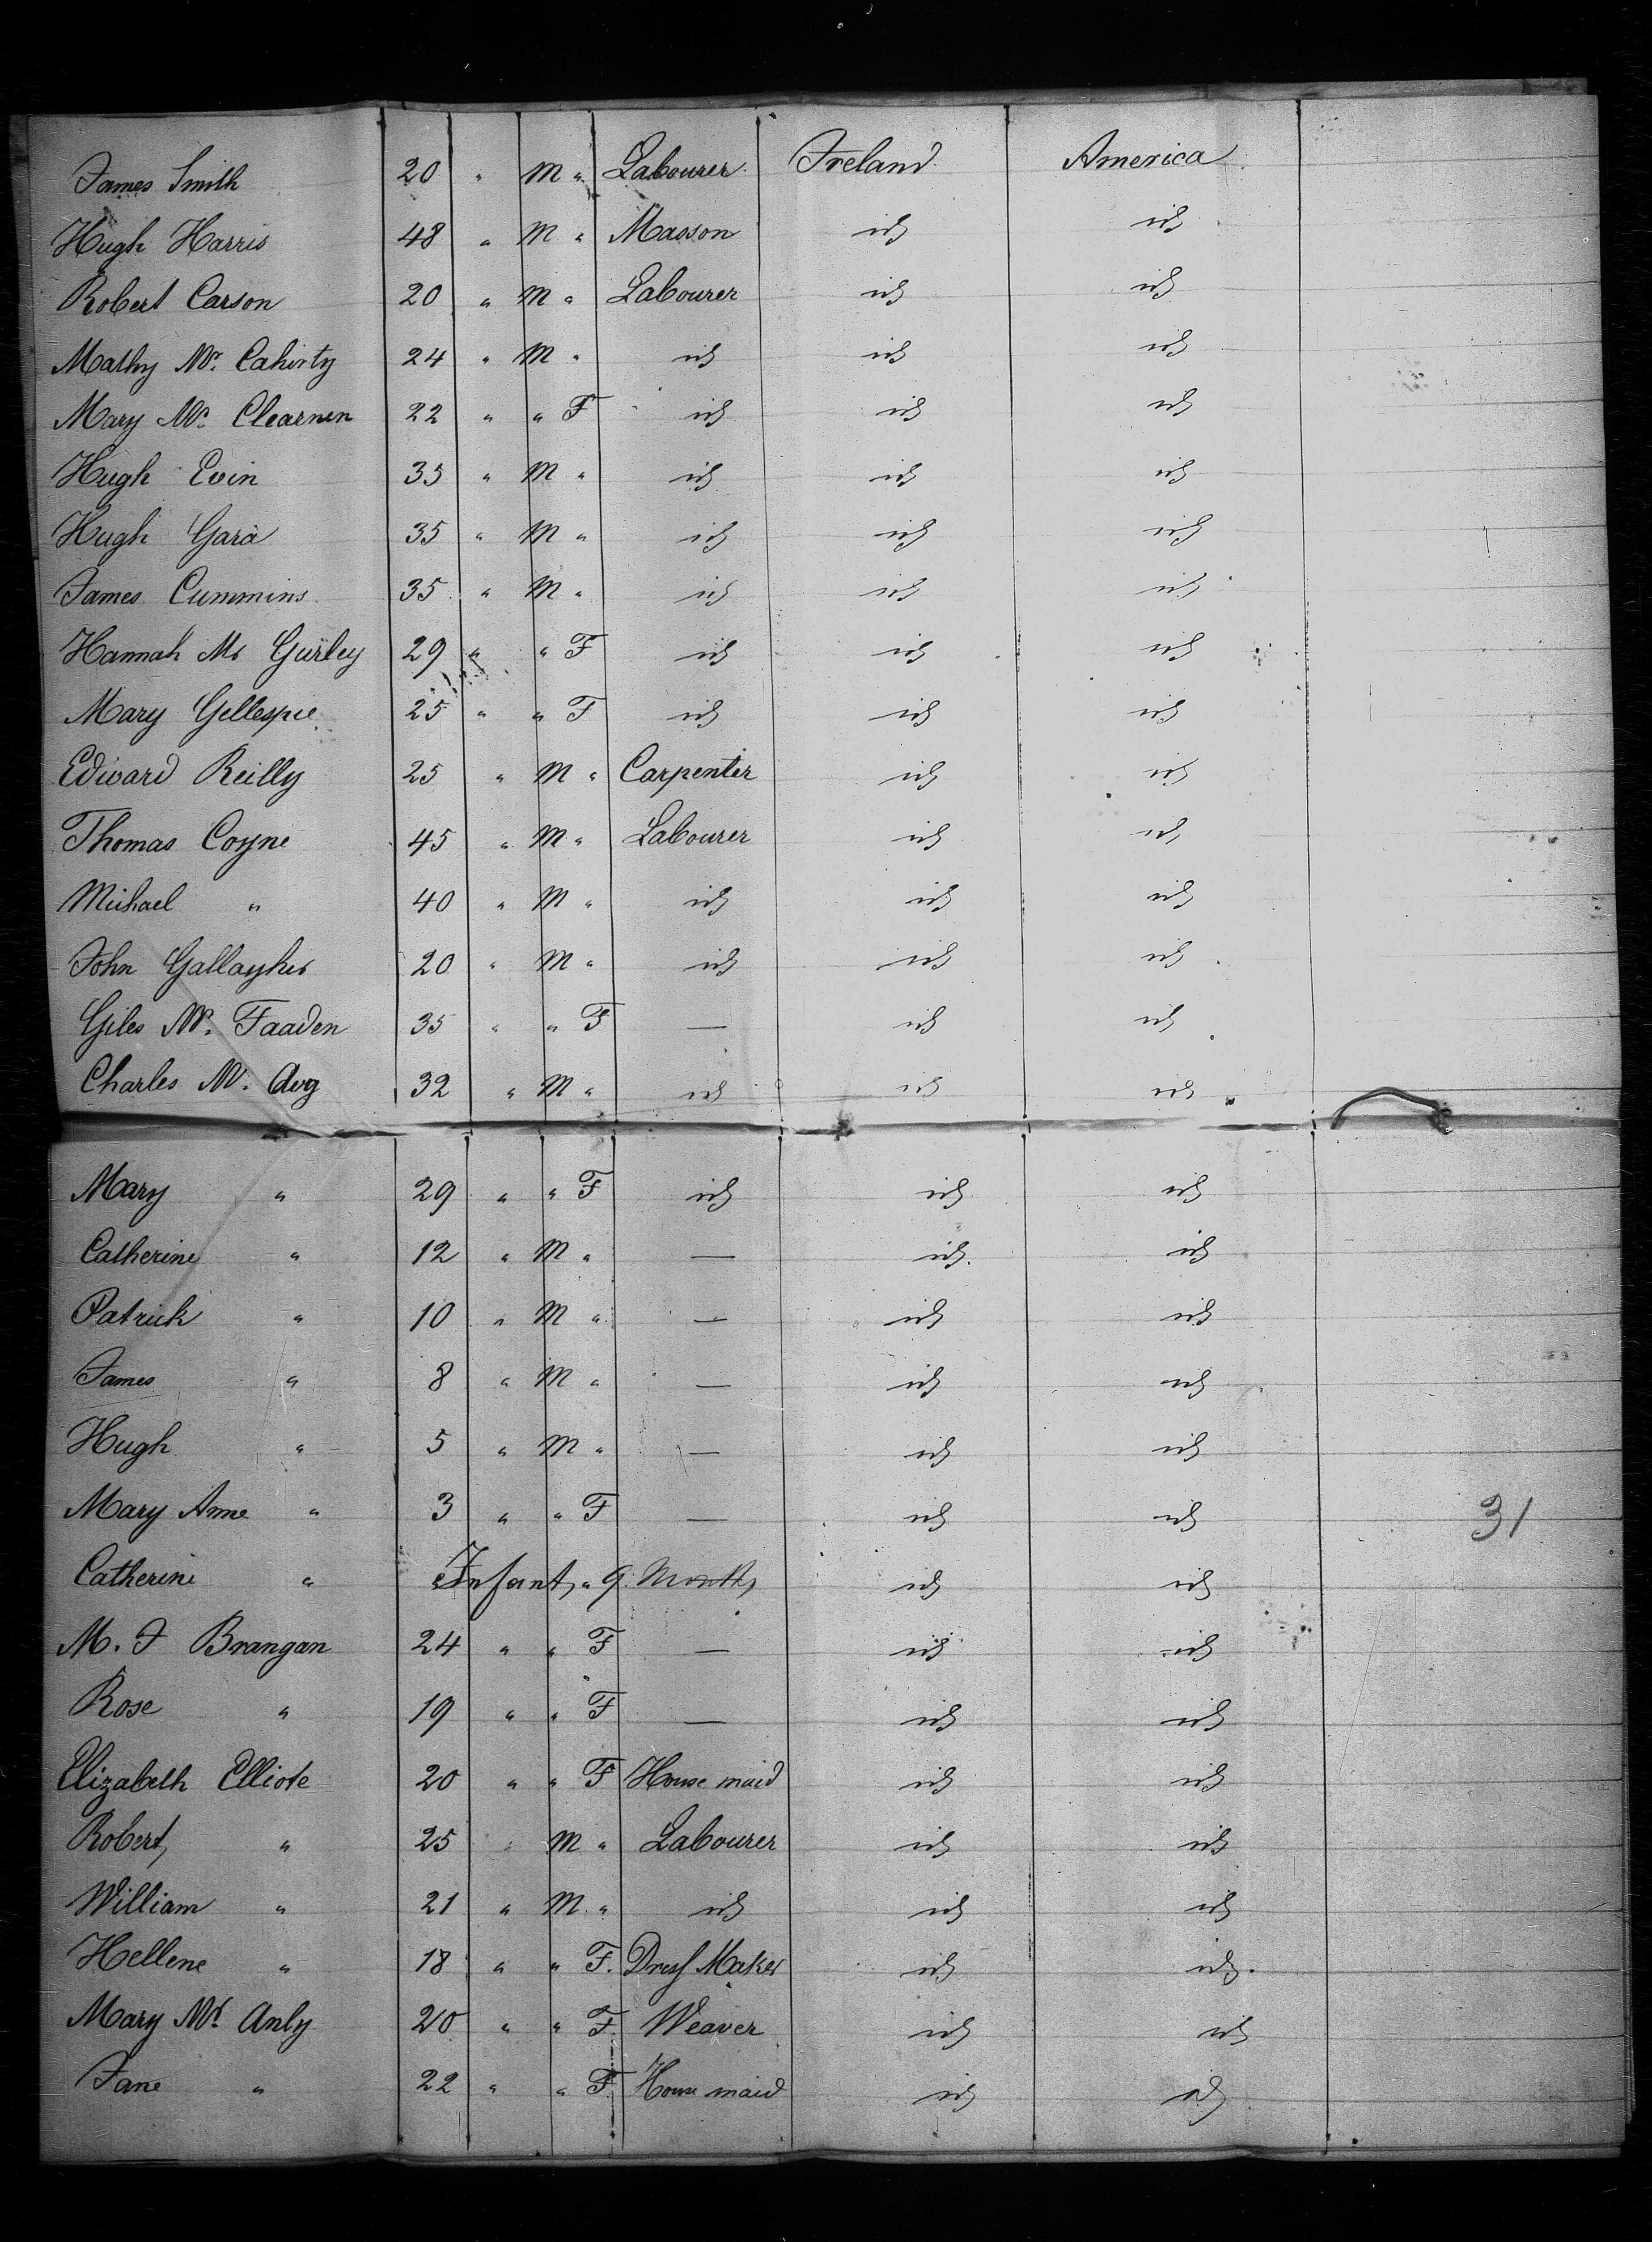 James Smith 20 " M " Labourer Ireland America
Hugh Harris 48 " M " Masson id id
Robert Carson 20 " M " Labourer id id
Mathy Mc. Cahirty 24 " M " id id id
Mary Mc. Clearnen 22 " " F id id id
Hugh Evin 35 " M " id id id
Hugh Gara 35 " M " id id id
James Cummins 35 " M " id id id
Hannah Mc Gurley 29 " " F id id id
Mary Gellespie 25 " " F id id id
Edward Reilly 25 " M " Carpenter id id
Thomas Coyne 45 " M " Labourer id id
Michael " 40 " M " id id id
John Gallagher 20 " M " id id id
Giles Mc. Faaden 35 " " F — id id
Charles Mc. Avg 32 " M " id id id
Mary " 29 " " F id id id
Catherine " 12 " M " — id id
Patrick " 10 " M " — id id
James " 8 " M " — id id
Hugh " 5 " M " — id id
Mary Anne " 3 " " F — id id 31
Catherine " Infant, " 9 Months id id
M. J Brangan 24 " " F — id id
Rose " 19 " " F — id id
Elizabeth Elliote 20 " " F House maid id id
Robert, " 25 " M " Labourer id id
William " 21 " M " id id id
Hellene " 18 " " F. Dress Maker id id.
Mary Mc. Anly 20 " " F. Weaver id id
Jane " 22 " " F House maid id id